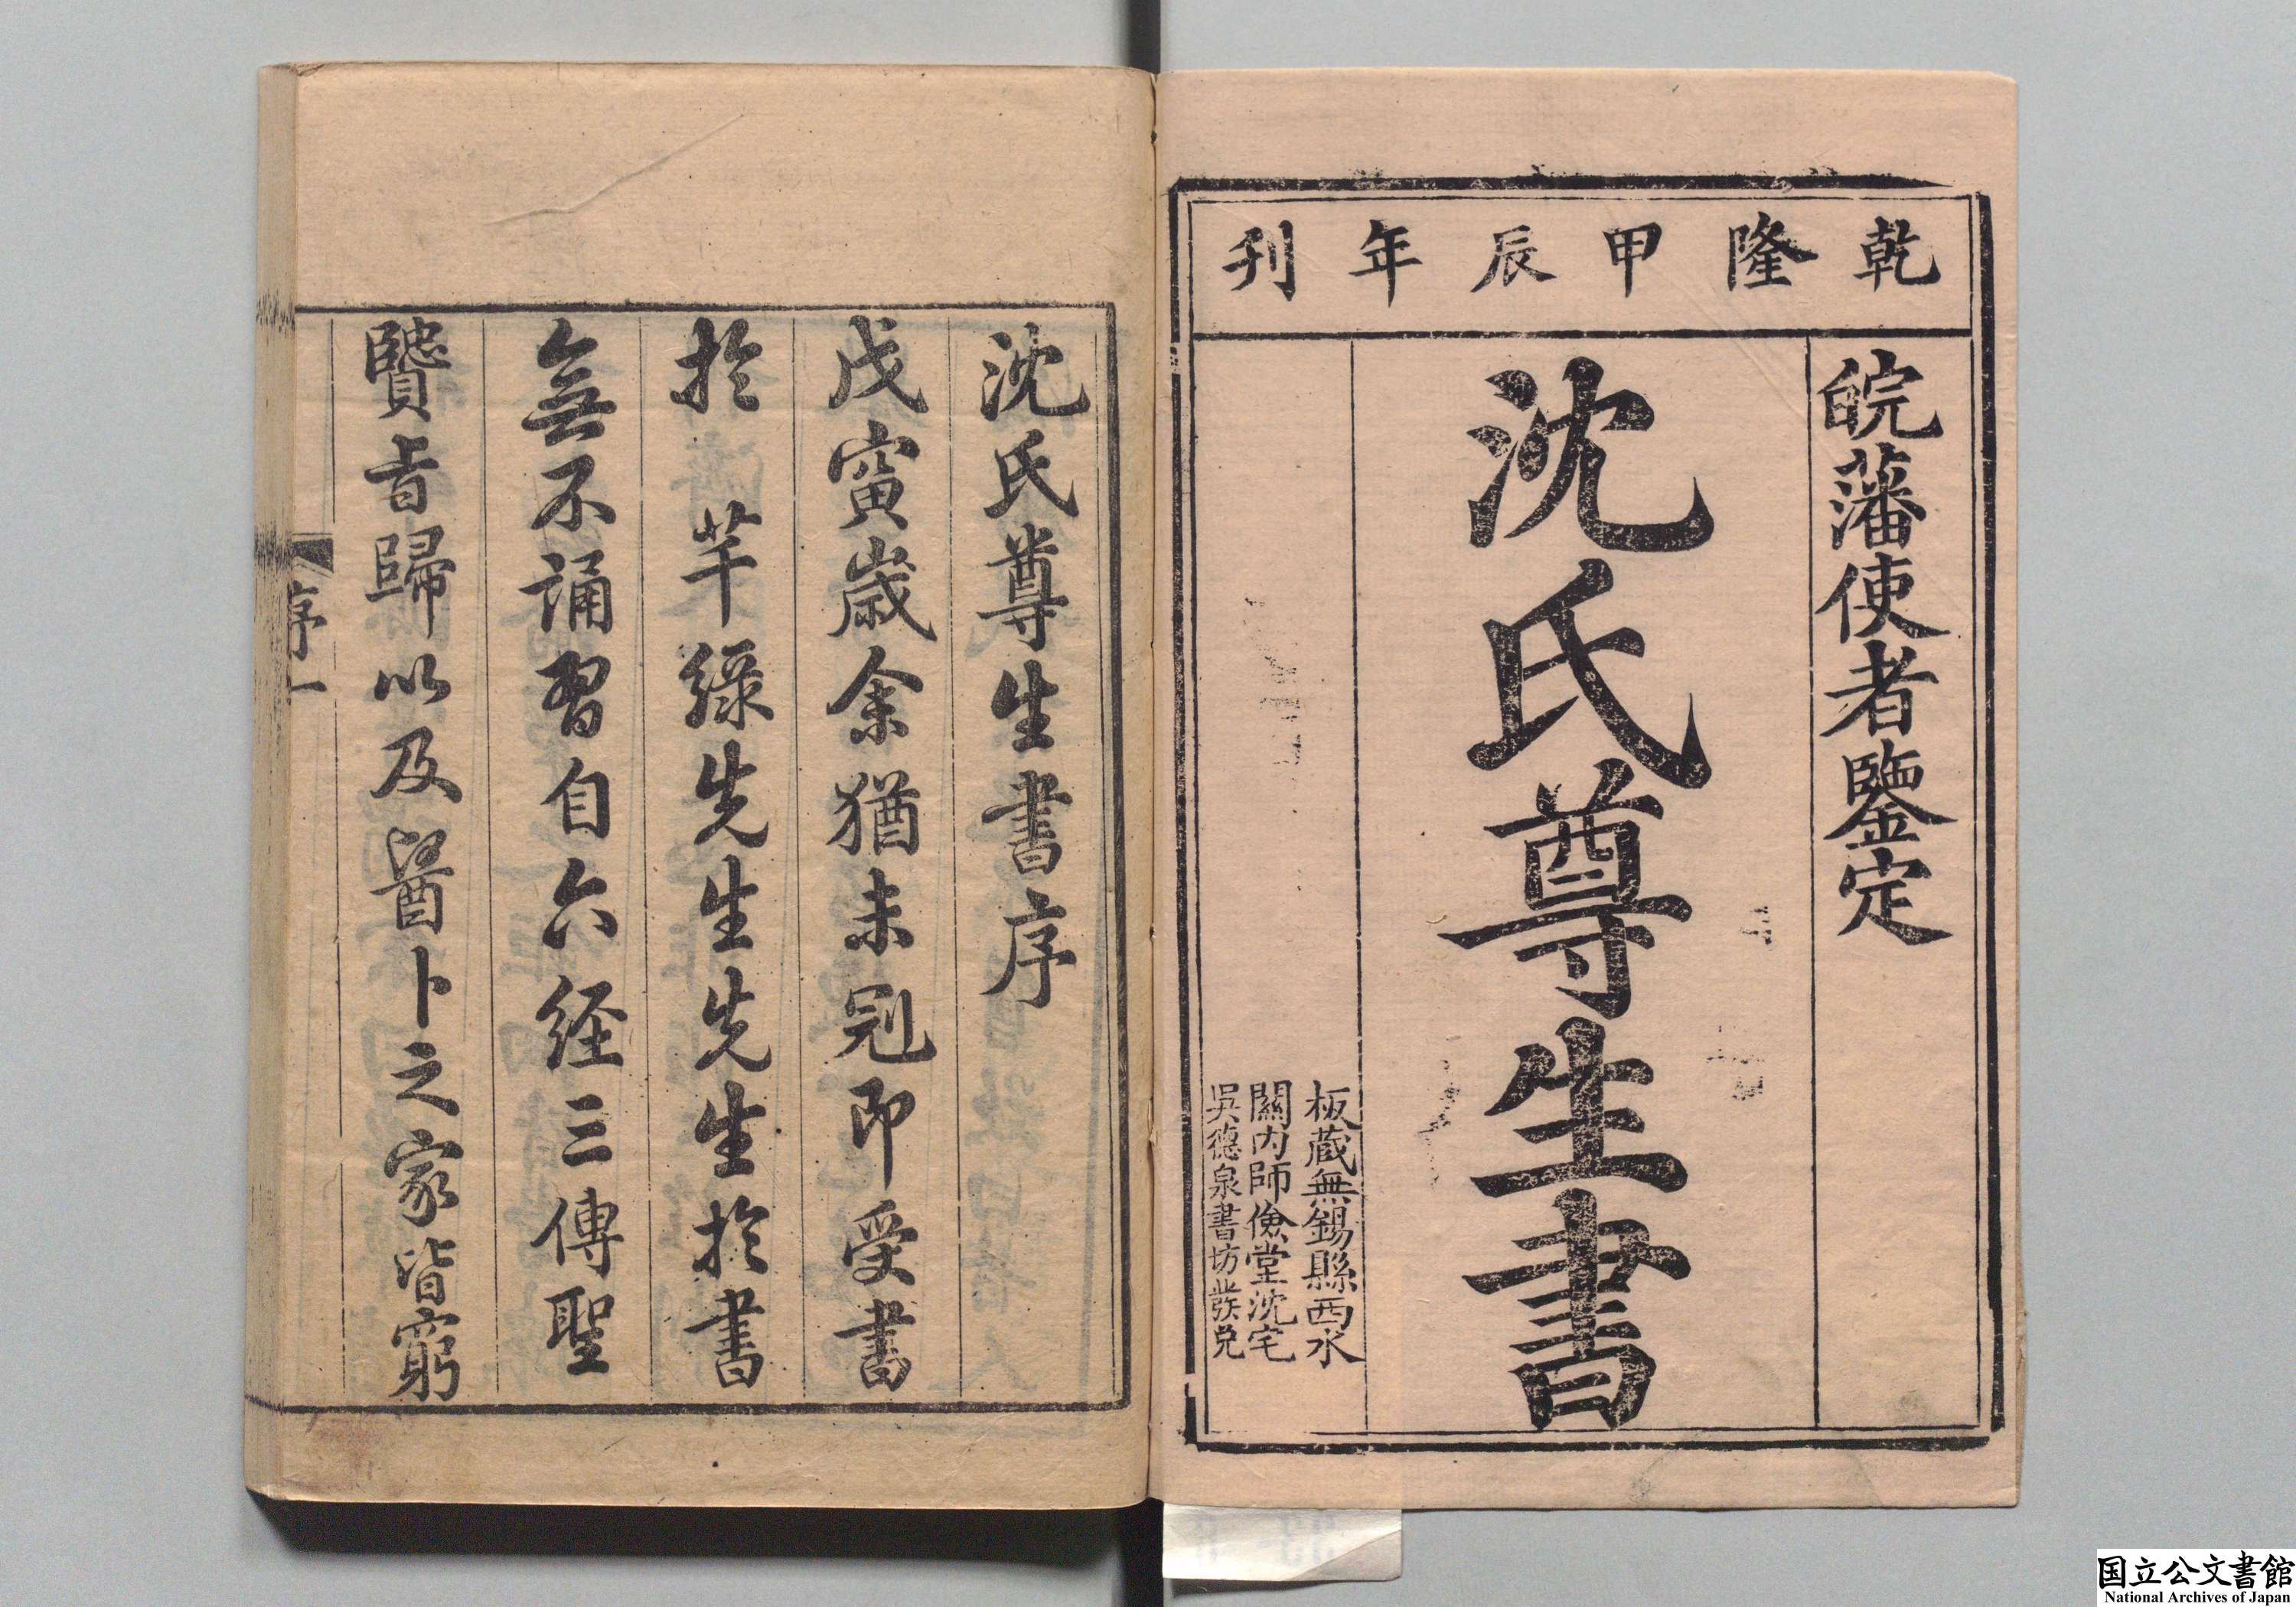 乾隆甲辰年刊
皖藩使者鑒定
沈氏尊生書
板藏無錫縣西水
關內師儉堂沈宅
吳德泉書坊發兌
沈氏尊生書序
戊寅歲余猶未冠即受書
於　芊綠先生先生於書
無不誦習自六经三傳聖
賢旨歸以及醫卜之家皆窮
序一
国立公文書館
National Archives of Japan